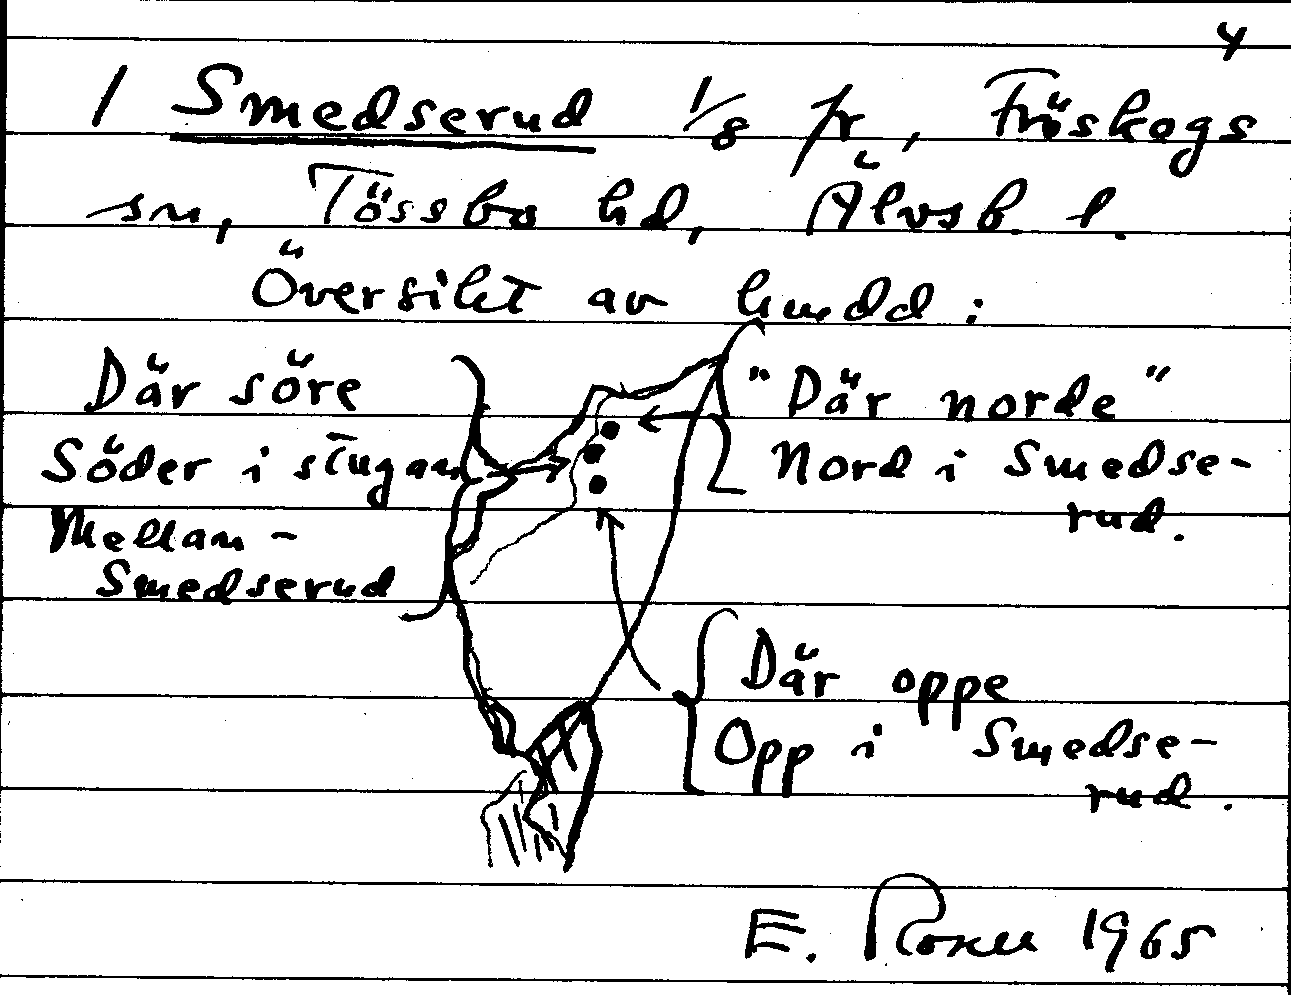 4
1 Smedserud 1/8 fr, Fröskogs
sn, Tössbo hd, Älvsb. l.
Översikt av hmdd:
Där söre
Söder i stugan
Mellan-
Smedserud
"Där norde"
Nord i Smedse-
rud.
Där oppe
Opp i Smedse-
rud.
E. 1965